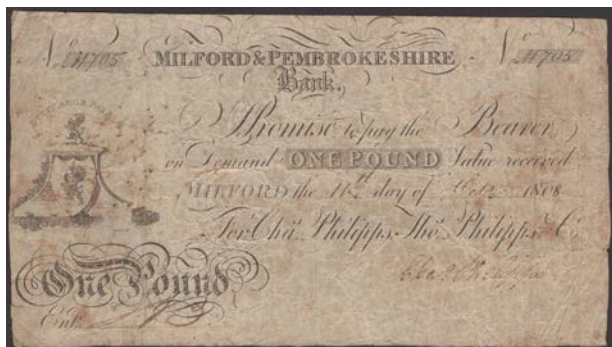 No 4705 MILFORD & PEMBROKESHIRE No 4705
Bank,
I Promise to pay the Bearer
on Demand ONE POUND Value received
MILFORD the 11th day of 1808
For Chas. Philipps, Thos. Philipps & Co.
One Pound
Entd.